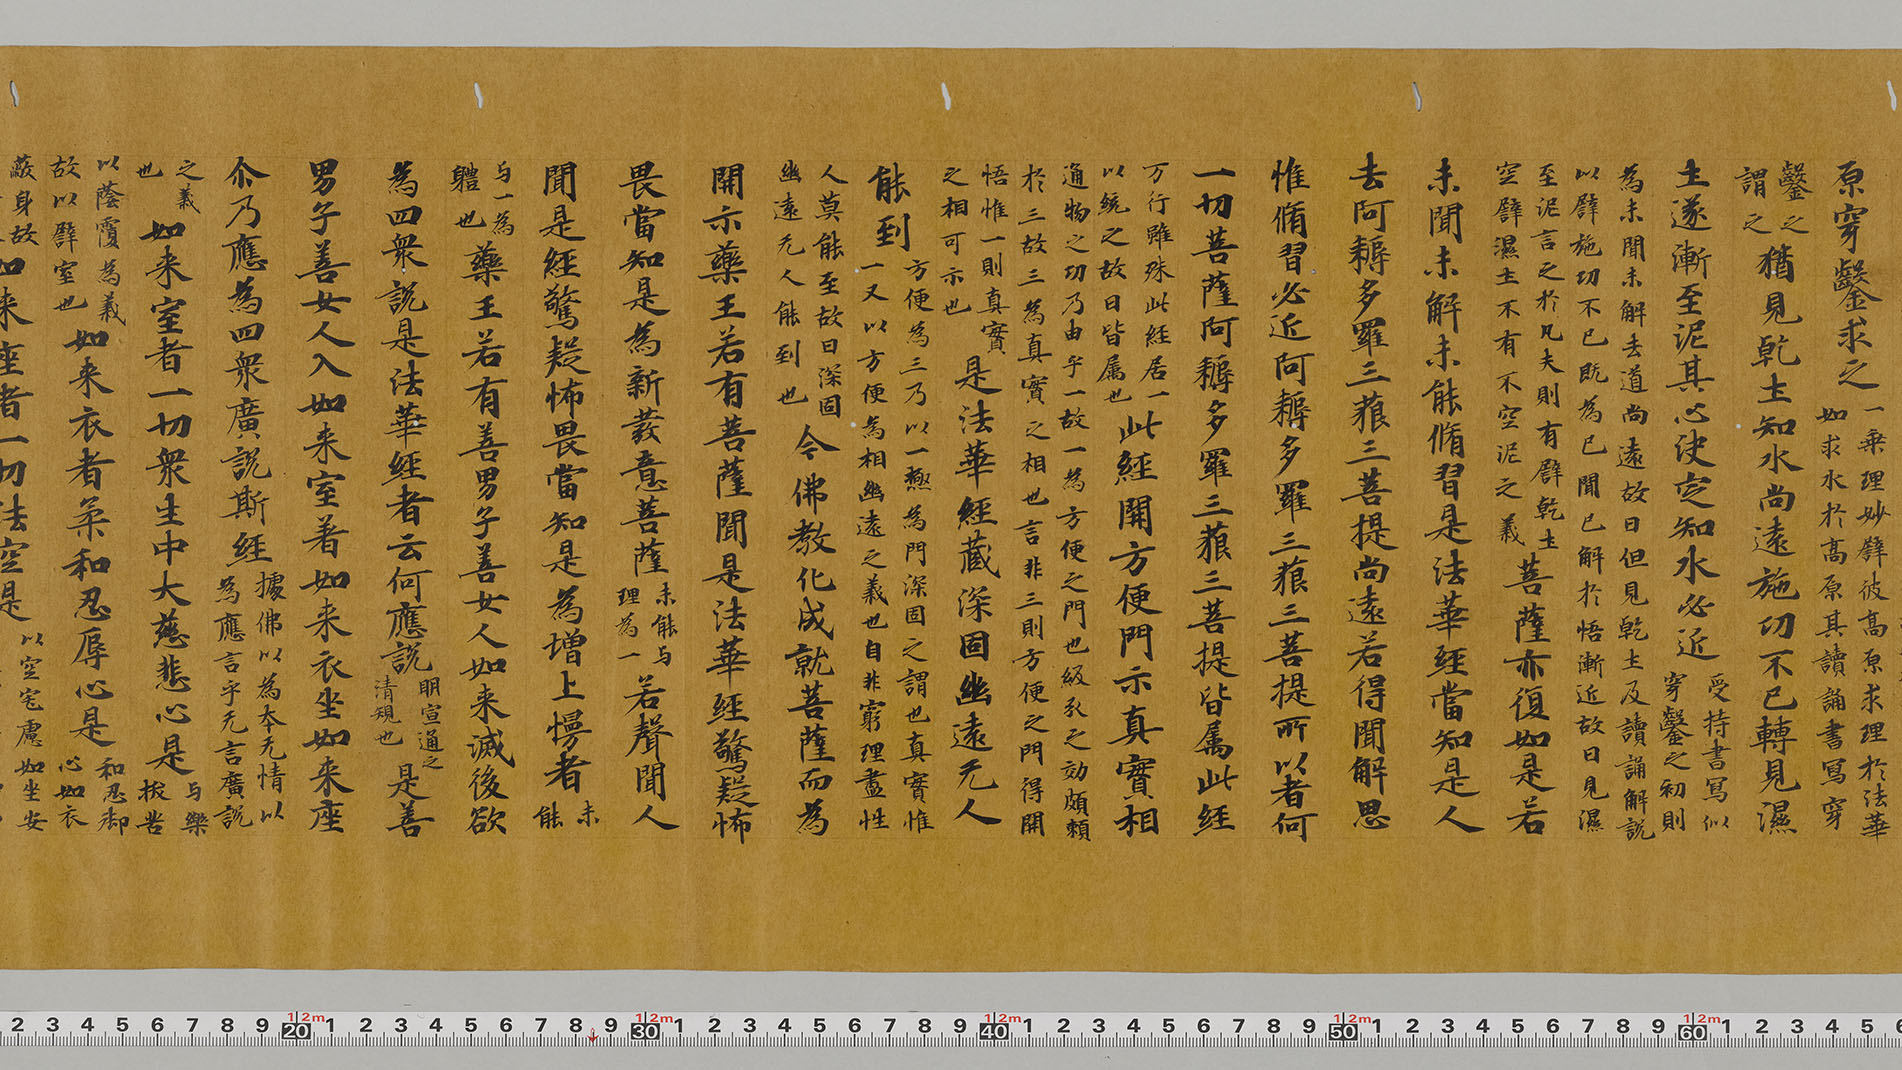 原穿鑿求之
一乗理妙譬彼高原求理於法華
如求水於高原其讀誦書寫穿
鑿之
謂之
猶見乾土知水尚遠施功不已轉見濕
土遂漸至泥其心決定知水必近
受持書寫似
穿鑿之初則
為未聞未解去道尚遠故曰但見乾土及讀誦解説
以譬施功不已既為已聞已解於悟漸近故曰見濕
至泥言之於凡夫則有譬乾土
空譬濕土不有不空泥之義
菩薩亦復如是若
未聞未解未能脩習是法華經當知是人
去阿耨多羅三藐三菩提尚遠若得聞解思
惟脩習必近阿耨多羅三藐三菩提所以者何
一切菩薩阿耨多羅三藐三菩提皆属此經
万行雖殊此經居一
以統之故曰皆属也
此經開方便門示真實相
通物之功乃由乎一故一為方便之門也級引之効頗頼
於三故三為真實之相也言非三則方便之門得開
悟惟一則真實
之相可示也
是法華經蔵深固幽遠无人
能到
方便為三乃以一極為門深固之謂也真實惟
一又以方便為相幽遠之義也自非窮理盡性
人莫能至故曰深固
幽遠无人能到也
今佛教化成就菩薩而為
開示藥王若有菩薩聞是法華經驚疑怖
畏當知是為新發意菩薩
未能与
理為一
若聲聞人
聞是經驚疑怖畏當知是為増上慢者
未
能
与一為
軆也
藥王若有善男子善女人如来滅後欲
為四衆説是法華經者云何應説
明宣通之
清規也
是善
男子善女人入如来室著如来衣坐如来座
尒乃應為四衆廣説斯經
據佛以為本无情以
為應言乎无言廣説
之義
也
如来室者一切衆生中大慈悲心是
与樂
拔苦
以蔭覆為義
故以譬室也
如来衣者柔和忍辱心是
和忍御
心如衣
蔽身故
如来座者一切法空是
以空宅慮如坐安